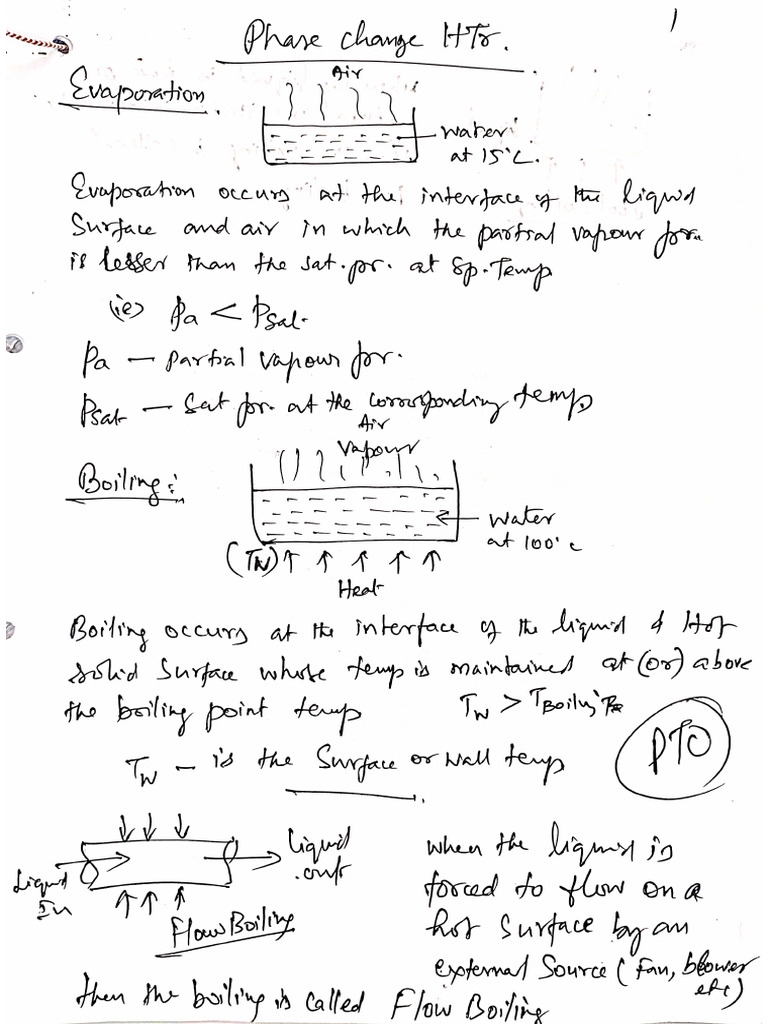 1
Phase change HTr.
Evaporation
Air
water
at 15°C.
Evaporation occurs at the interface of the liquid
Surface and air in which the partial vapour pr.
is lesser than the sat. pr. at Sp. Temp
(ie) Pa < Psat.
Pa — partial vapour pr.
Psat — Sat pr. at the corresponding temp.
Air
Vapour
Boiling:
water
at 100°c
(TW)
Heat
Boiling occurs at the interface of the liquid & Hot
Solid Surface whose temp is maintained at (or) above
the boiling point temp TW > TBoiling
PTO
TW — is the Surface or wall temp
Liquid
In
Liquid
out
Flow Boiling
when the liquid is
forced to flow on a
hot Surface by an
external Source (Fan, blower
etc)
then the boiling is called Flow Boiling